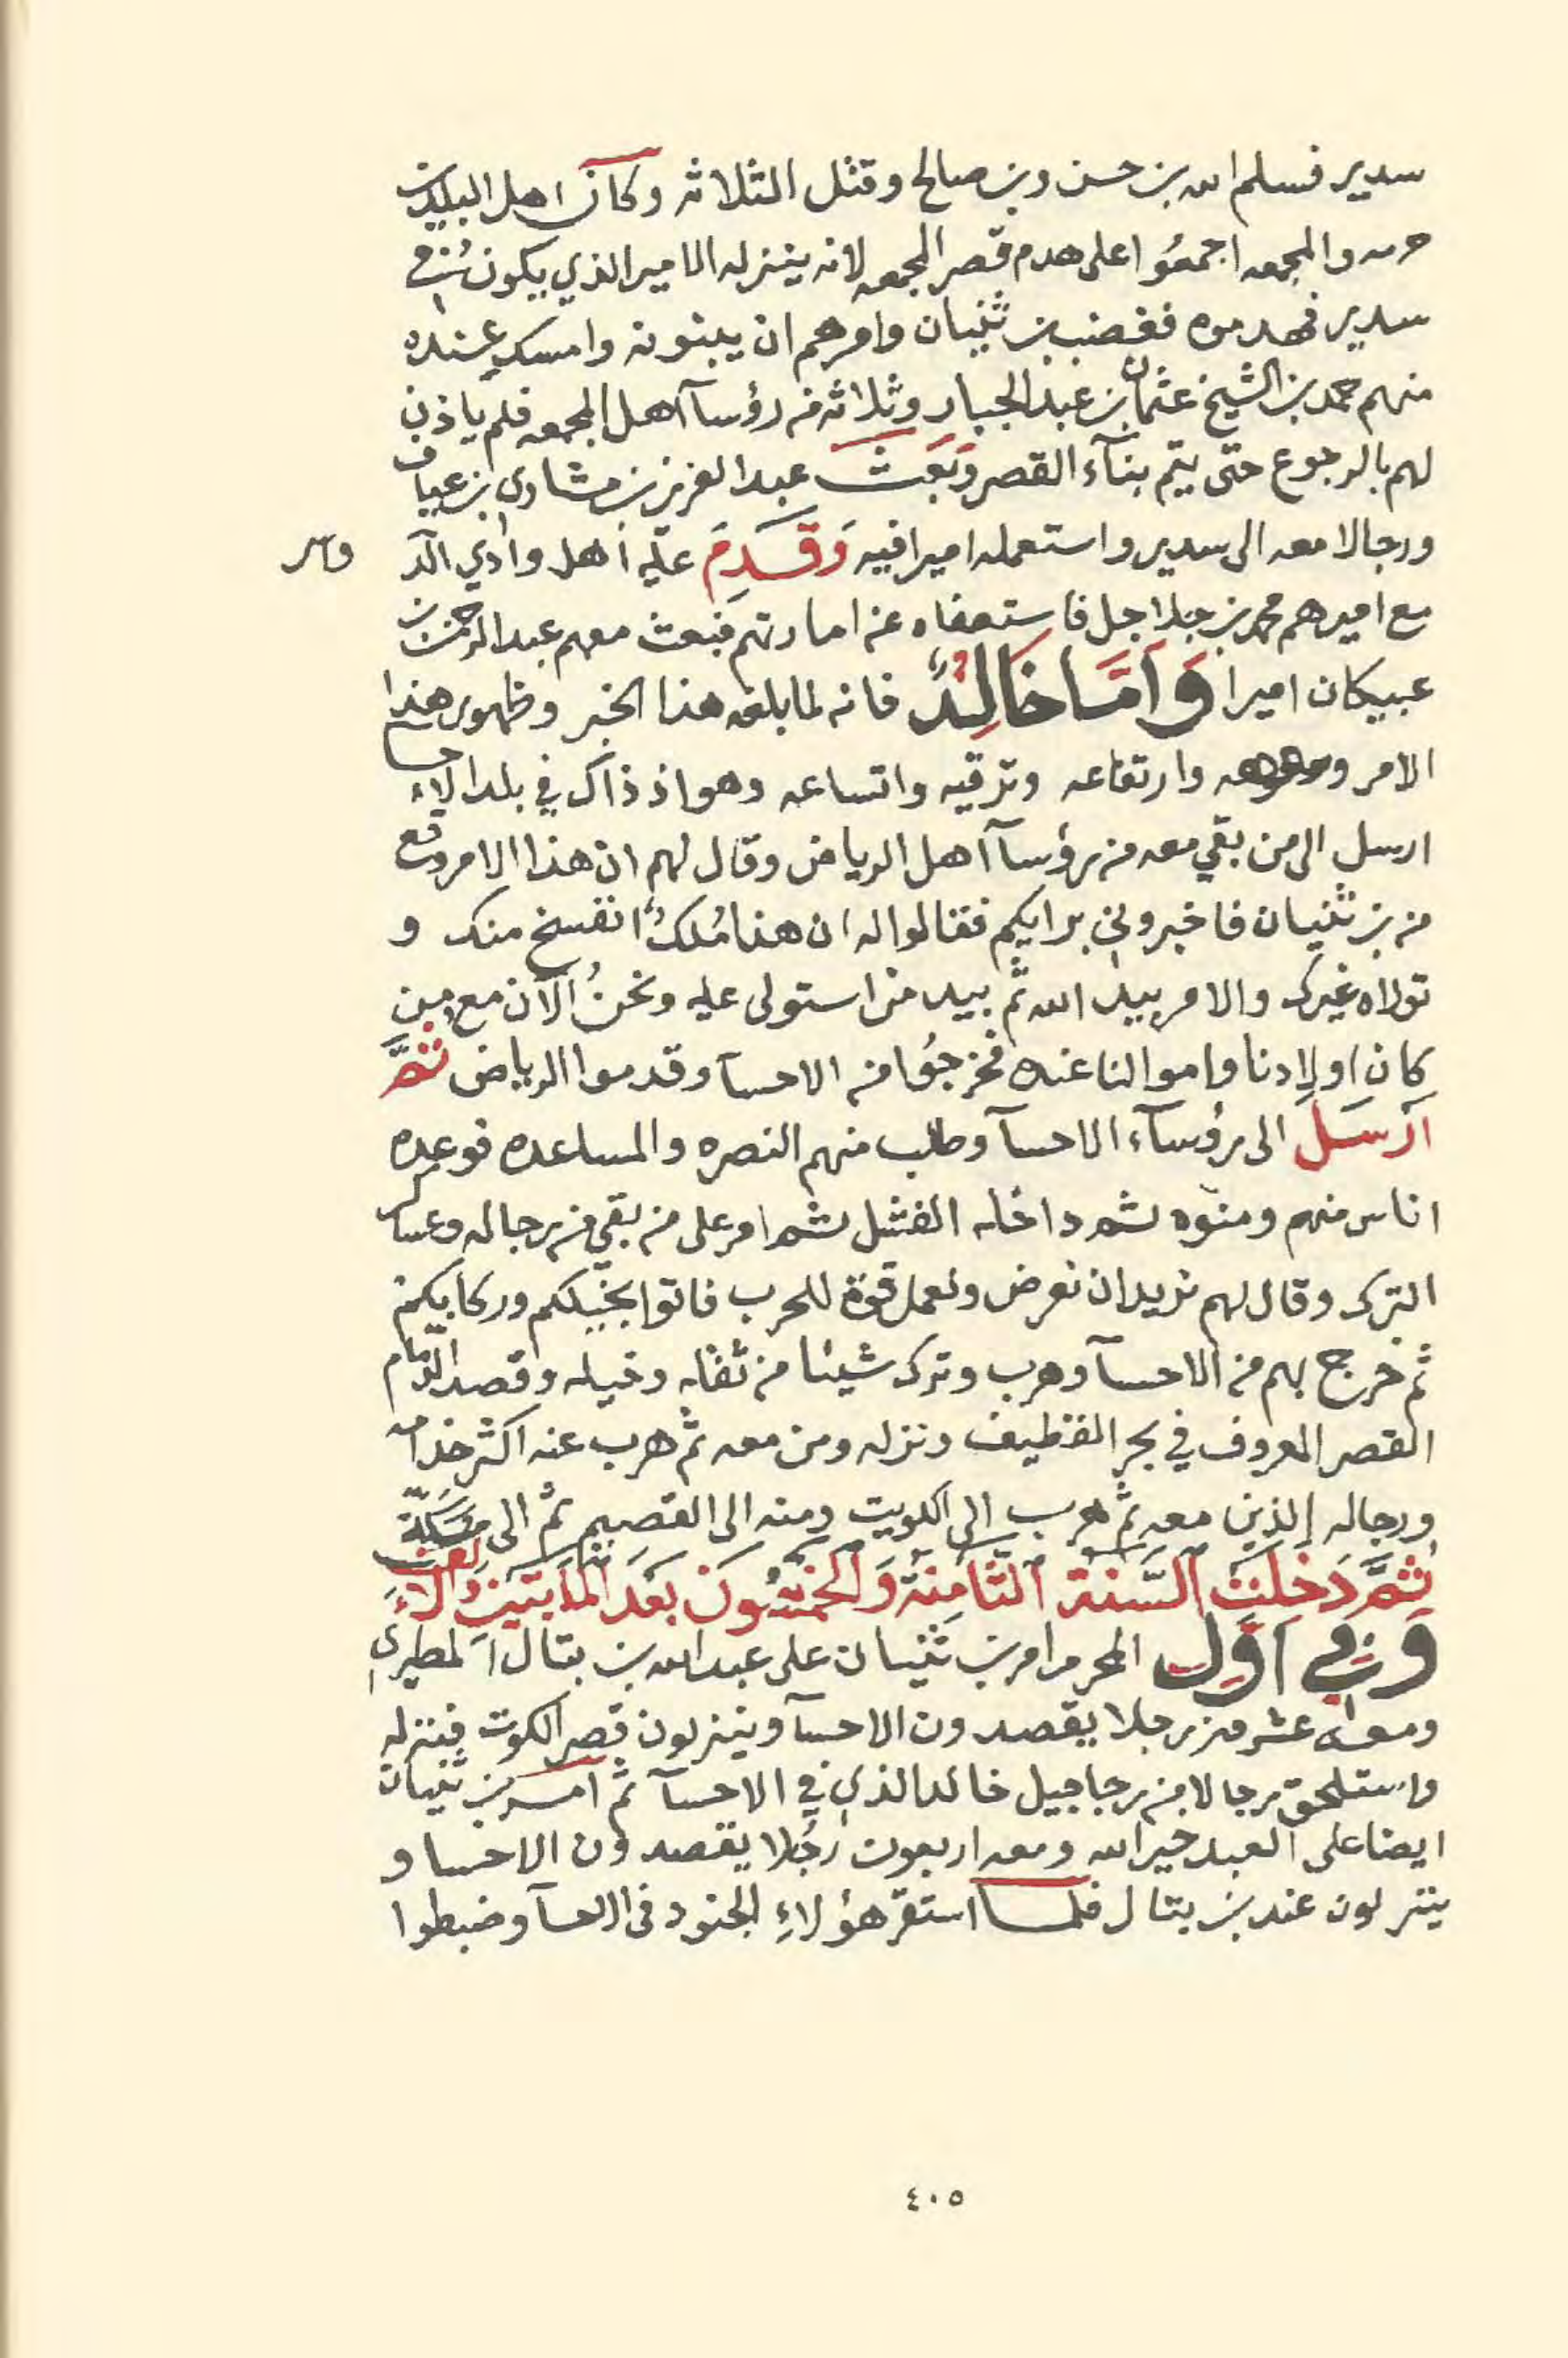 سدير فسلم الله بن حسن وبن صالح وقتل الثلاثه وكان اهل البلدين
حرمه والمجمعه اجمعُوا على هدم قصر المجمعه لانه ينزله الامير الذي يكون في
سدير فهدموه فغضب بن ثنيان وامرهم ان يبنونه وامسك عنده
منهم حمد بن الشيخ عثمان بن عبد الجبار وثلاثه من رؤسآ اهل المجمعه فلم ياذن
لهم بالرجوع حتى يتم بنآء القصر وَبَعَث عبد العزيز بن مشاري بن عياف
ورجالا معه الى سدير واستعمله اميرا فيه وَقَدِمَ عليه اهل وادي الدو
واسر
مع اميرهم محمد بن جلاجل فاستعفاه عن امارتهم فبعث معهم عبد الرحمن بن
عبيكان اميرا وَاَمَّا خَالِدٌ فانه لما بلغه هذا الخبر وظهور هذا
الامر وارتفاعه وترقيه واتساعه وهو اذ ذاك في بلد الاحساء
ارسل الى من بقي معه من رؤسآ اهل الرياض وقال لهم ان هذا الامر وقع
من بن ثنيان فاخبروني برايكم فقالوا له ان هذا مُلكٌ انفسخ منك و
تولاه غيرك والامر بيد الله ثم بيد من استولى عليه ونحنُ الآن مع من
كان اولادنا واموالنا عنده فخرجُوا من الاحسآ وقدموا الرياض ثمَّ
اَرسَل الى رؤسآء الاحسآ وطلب منهم النصره والمساعده فوعده
اناس منهم ومنوه ثم داخله الفشل ثم امر على من بقي من رجاله وعساكر
الترك وقال لهم نريد ان نعرض ونعمل قوة للحرب فاتوا بخيلكم وركابكم
ثم خرج بهم من الاحسآ وهرب وترك شيئا من ثقله وخيله وقصد الدمام
القصر المعروف في بحر القطيف ونزله ومن معه ثم هرب عنه اكثر خدامه
ورجاله الذين معه ثم هرب الى الكويت ومنه الى القصيم ثم الى مَكّة
ثمَّ دَخَلَت السَّنة الثَّامِنَة وَالخمسُونَ بَعدَ المأتين وَالاَلف
وَفي اَوّل المحرم امر بن ثنيان على عبد الله بن بتال المطيري
ومعه عشرين رجلا يقصدون الاحسآ وينزلون قصر الكوت فنزله
واستلحق رجالا من رجاجيل خالد الذي في الاحسآ ثم اَمَر بن ثنيان
ايضا على العبد خير الله ومعه اربعون رجُلا يقصدون الاحسا و
ينزلون عند بن بتال فلما استقرّ هؤلاءِ الجنود في الاحسآ وضبطوا
٤٠٥